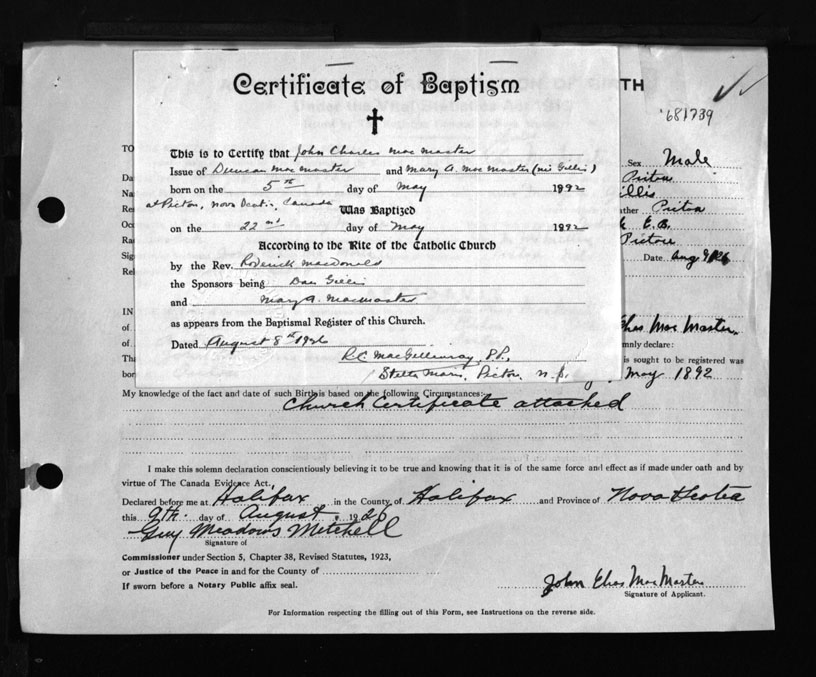 Certificate of Baptism
TH
681739
TO
This is to Certify that John Charles Mac Master
Sex Male
Issue of Duncan Mac Master and Mary A. Mac Master (née Gillis)
Da
Pictou
born on the 5th day of May 1892
Na
illis
at Pictou, Nova Scotia, Canada
Res
ather Pictou
Was Baptized
Occ
E.B.
on the 22nd day of May 1892
Ra
Pictou
According to the Rite of the Catholic Church
Sig
Date Aug 9
by the Rev. Roderick MacDonald
Rel
the Sponsors being Dan Gillis
and Mary A. MacMaster
IN
as appears from the Baptismal Register of this Church.
of
Chas Mac Master
Dated August 8th 1926
of
mnly declare:
R.C. MacGillivray, P.P.,
Tha
is sought to be registered was
Stella Maris, Pictou, N.S.
bor
May 1892
My knowledge of the fact and date of such Birth is based on the following Circumstances:
Church Certificate attached
I make this solemn declaration conscientiously believing it to be true and knowing that it is of the same force and effect as if made under oath and by
virtue of The Canada Evidence Act.
Declared before me at Halifax in the County of Halifax and Province of Nova Scotia
this 9th day of August 1926
Guy Meadows Mitchell
Signature of
Commissioner under Section 5, Chapter 38, Revised Statutes, 1923,
or Justice of the Peace in and for the County of
If sworn before a Notary Public affix seal.
John Chas Mac Master
Signature of Applicant.
For Information respecting the filling out of this Form, see Instructions on the reverse side.